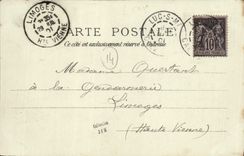 LIMOGES
Hte VIENNE
CARTE POSTALE
LUC-S-M
Ce côté est exclusivement réservé à l'adresse
10
14
Madame Quertant
à la Gendarmerie
Limoges
(Haute Vienne)